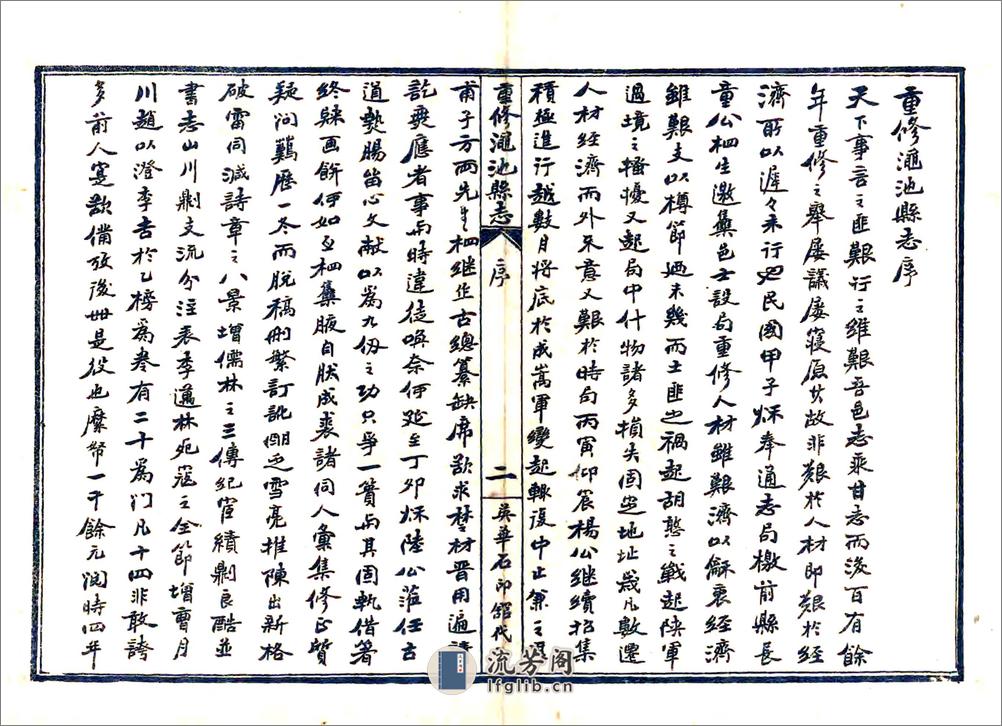 重修澠池縣志序
天下事言之匪艱行之維艱吾邑志乘甘志而後百有餘
年重修之舉屢議屢寢原其故非艱於人材即艱於經
濟所以遲々未行也民國甲子秋奉通志局檄前縣長
童公栖生邀集邑士設局重修人材雖艱濟以龢衷經濟
雖艱支以樽節迺未幾而土匪之禍起胡憨之戰起陝軍
過境之騷擾又起局中什物諸多損失固定地址歲凡數遷
人材經濟而外不意又艱於時局丙寅仰辰楊公繼續招集
積極進行越數月將底於成嵩軍變起輒復中止兼之
重修澠池縣志
序
二
吳華石印館代
甫子方兩先生相繼作古總纂缺席欲求楚材晉用遍
訖無應者事與時違徒喚奈何延至丁卯秋陸公蒞任古
道熱腸留心文献以為九仞之功只爭一簣而其固執借箸
終歸画餅何如亟栖集腋自狀成裘諸同人彙集修正質
疑问難歷一冬而脫稿刪繁訂訛朗之雪亮推陳出新格
破雷同滅詩章之八景增儒林之三傳紀宦績剔良酷並
書志山川剔支流分注表季邁林死寇之全節增曹月
川趙以澄李吉於乙榜為卷有二十為门凡十四非敢誇
多前人寔欲備攷後世是役也縻幣一千餘元閱時四年
流芳阁
lfglib.cn